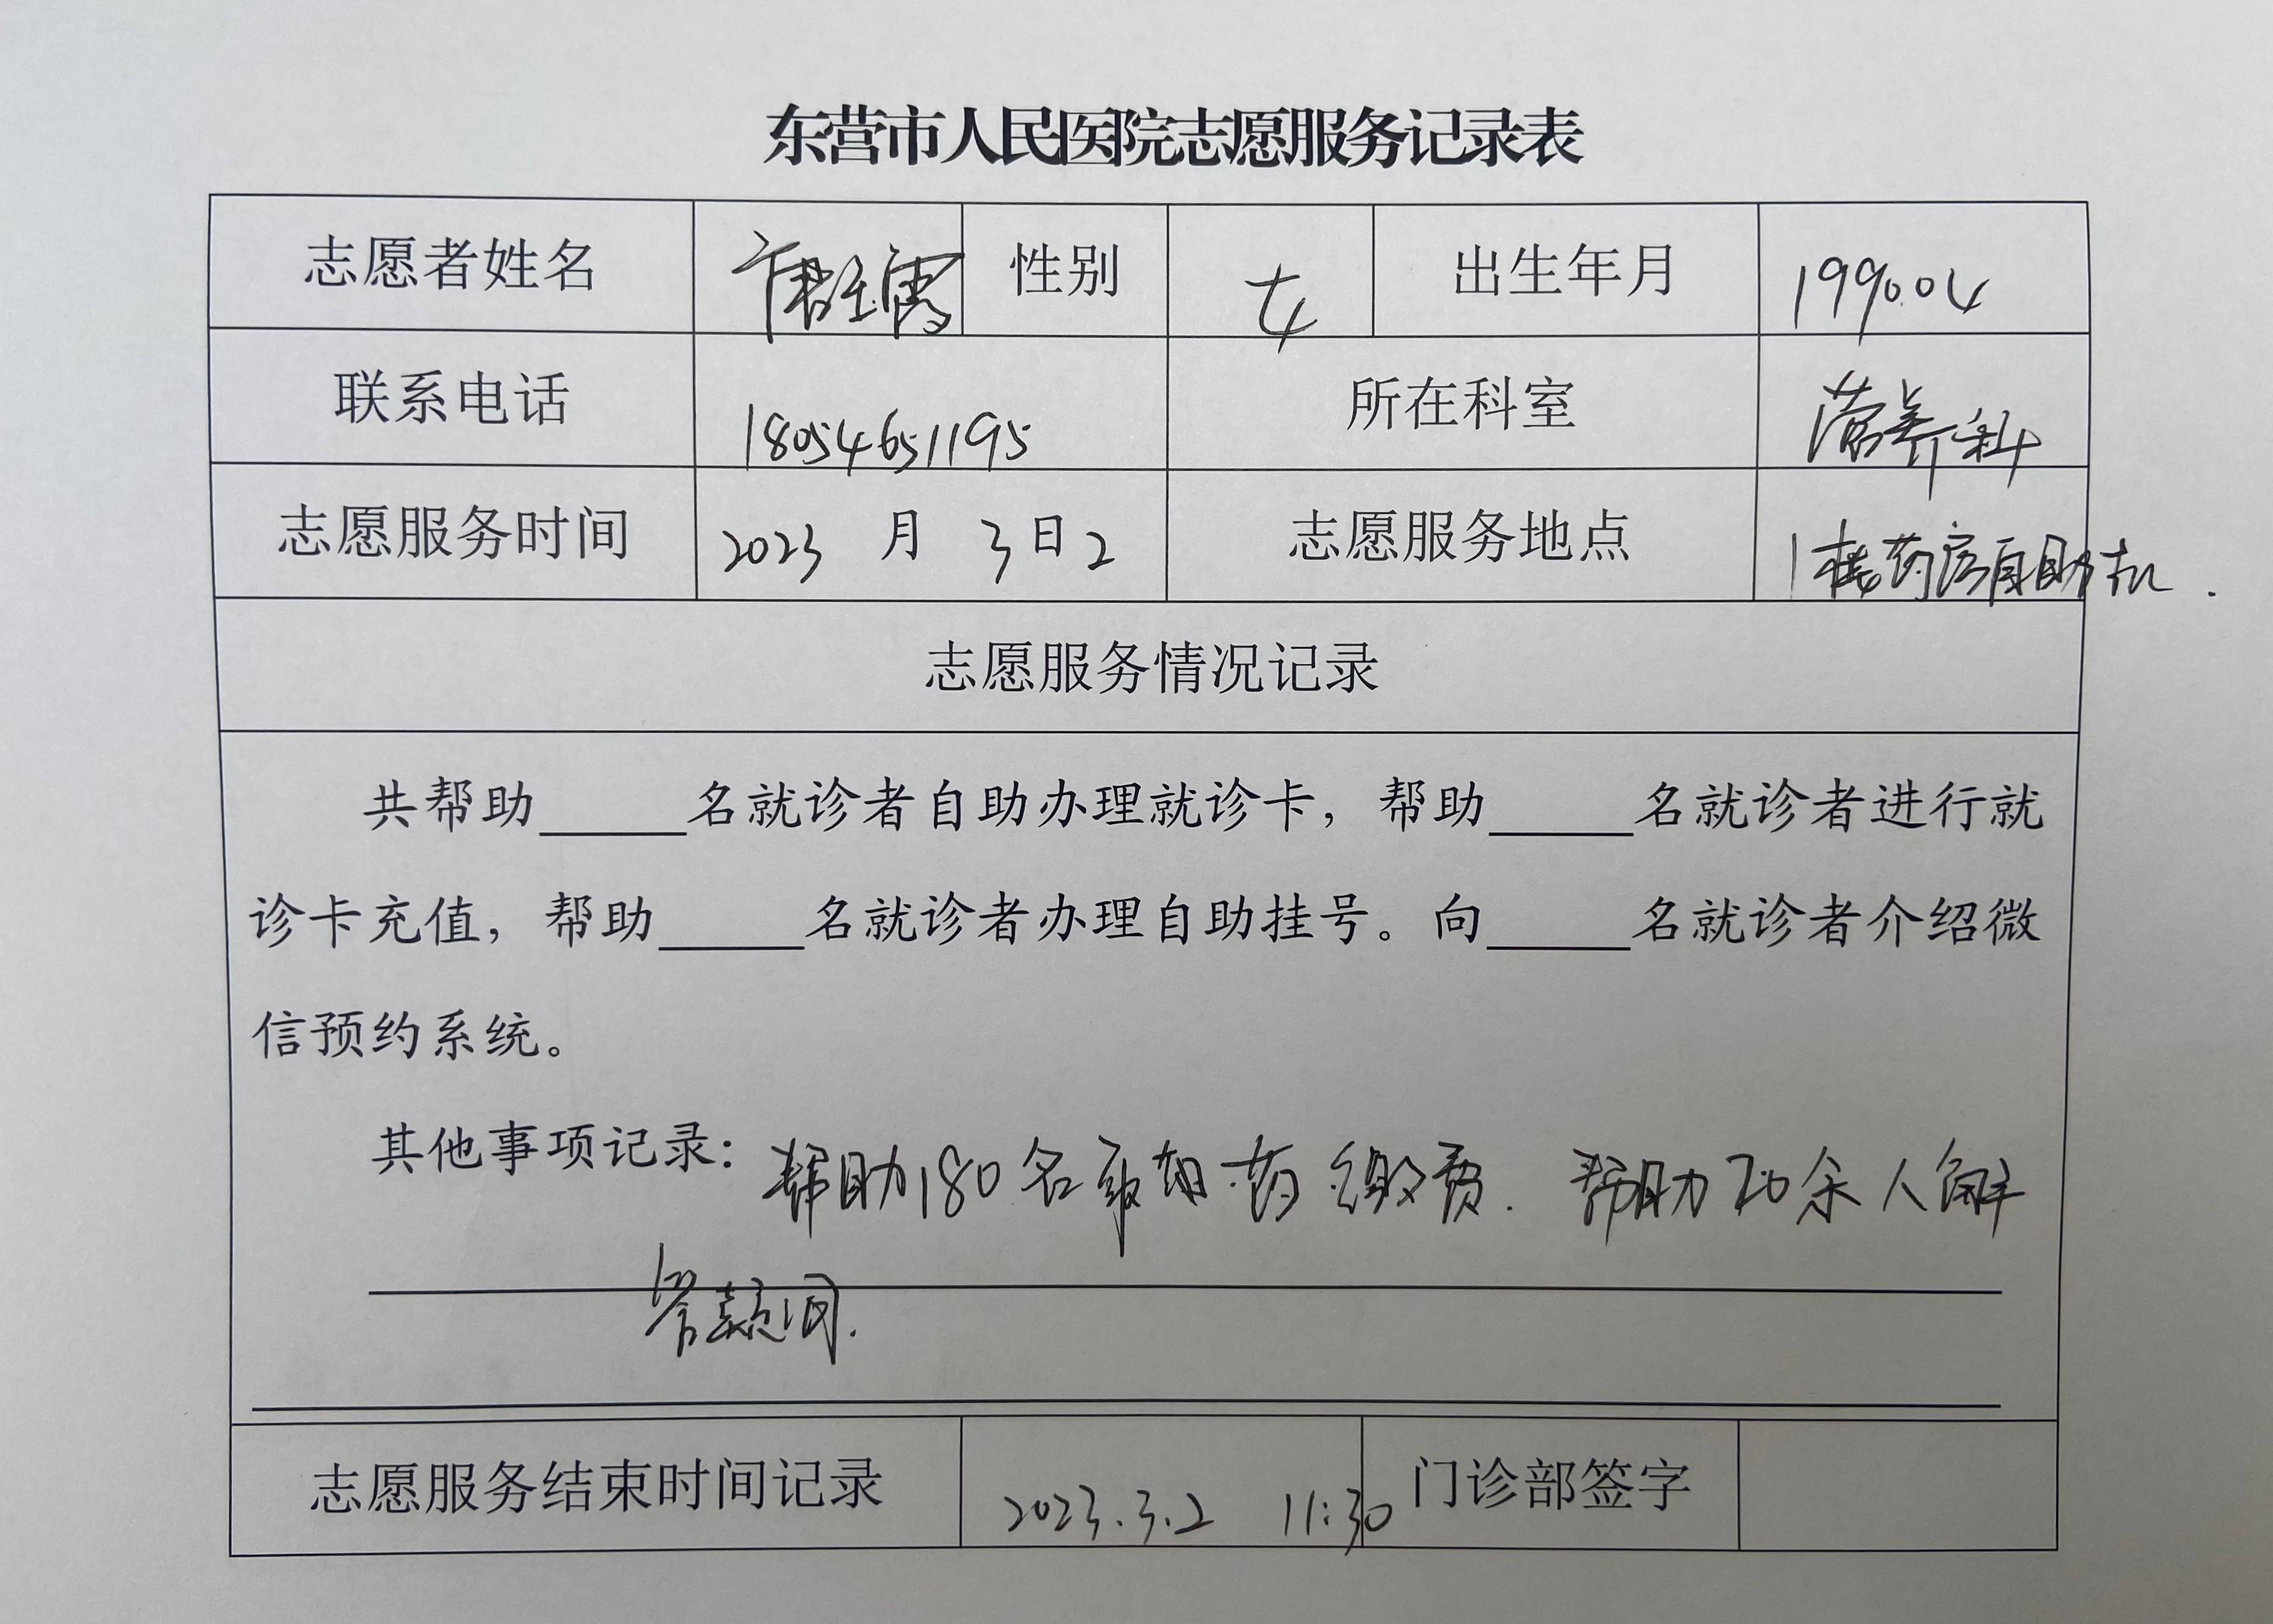 东营市人民医院志愿服务记录表
志愿者姓名 性别 女 出生年月 1990.04
联系电话 18054651195 所在科室 营养科
志愿服务时间 2023 月 3日2 志愿服务地点 1楼药房自助机.
志愿服务情况记录
共帮助_____名就诊者自助办理就诊卡，帮助_____名就诊者进行就
诊卡充值，帮助_____名就诊者办理自助挂号。向_____名就诊者介绍微
信预约系统。
其他事项记录：帮助180名 药缴费. 帮助70余人解
答疑问.
志愿服务结束时间记录 2023.3.2 11:30 门诊部签字